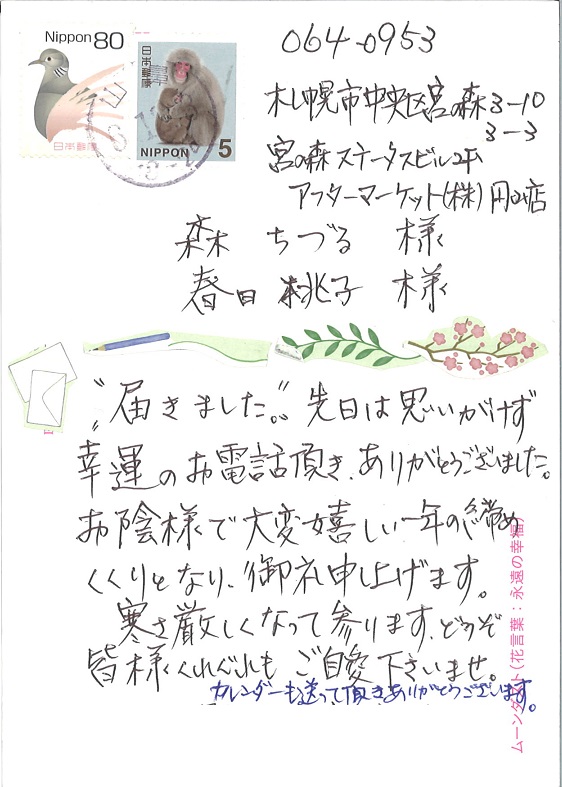 Nippon 80
日本郵便
日本郵便
NIPPON 5
064-0953
札幌市中央区宮の森3-10
3-3
宮の森ステータスビル2F
アフターマーケット(株)円山店
森 ちづる 様
春日 桃子 様
"届きました。" 先日は思いがけず
幸運のお電話頂き、ありがとうございました。
お陰様で大変嬉しい一年の締め
くくりとなり、御礼申上げます。
寒さ厳しくなって参ります、どうぞ
皆様くれぐれも ご自愛下さいませ。
カレンダーも送って頂きありがとうございます。
ムーンダスト(花言葉：永遠の幸福)